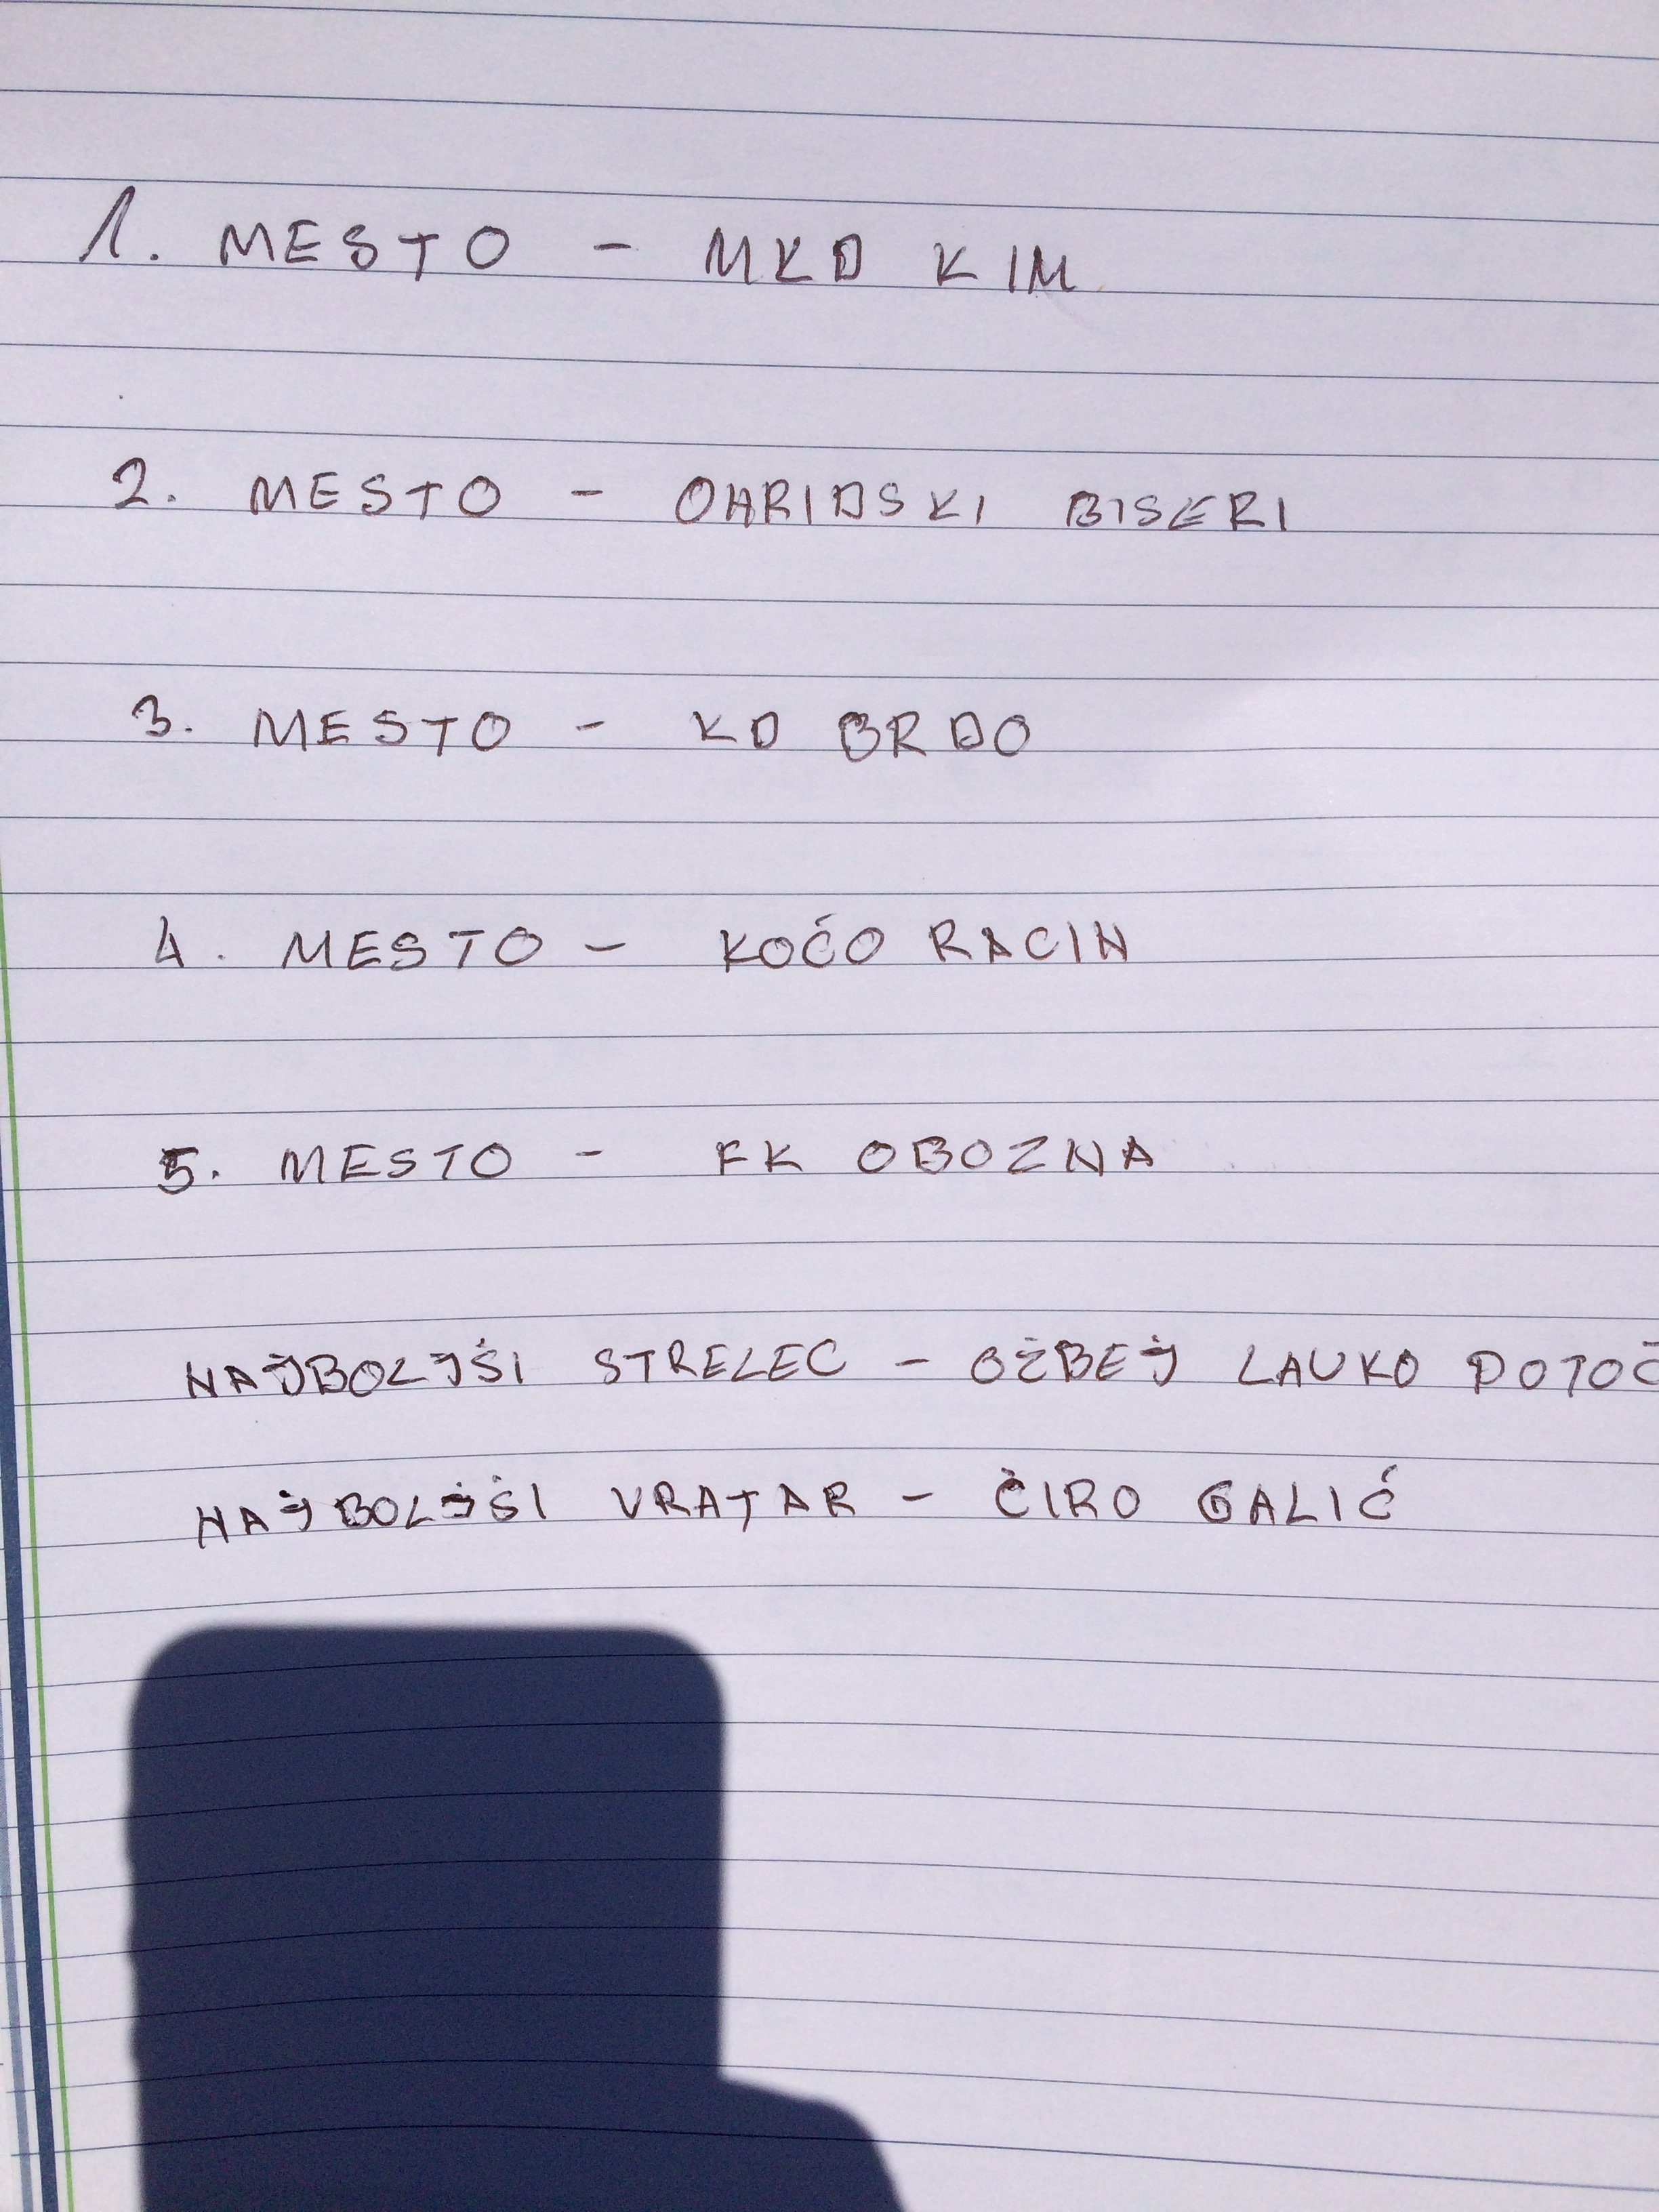 1. MESTO - MKD KIM
2. MESTO - OHRIDSKI BISERI
3. MESTO - KD BRDO
4. MESTO - KOČO RACIN
5. MESTO - FK OBOZNA
NAJBOLJŠI STRELEC - OŽBEJ LAUKO POTOČ
NAJBOLJŠI VRATAR - ČIRO GALIĆ